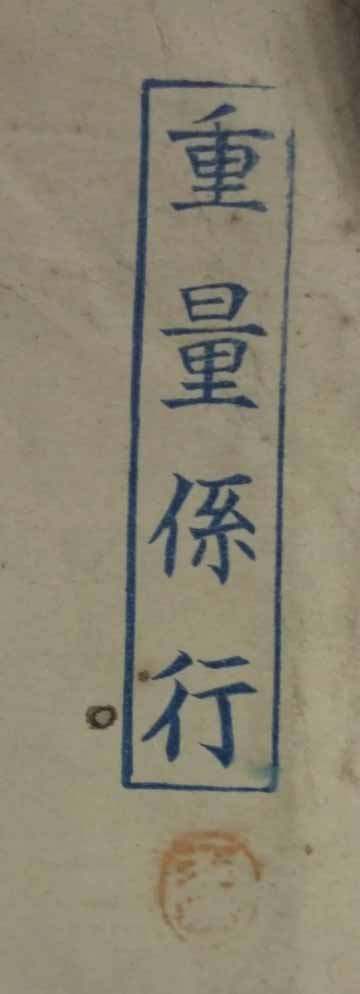 重量係行